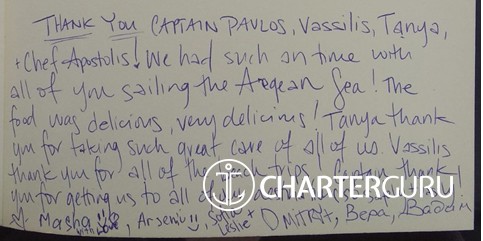 THANK YOU CAPTAIN PAVLOS, Vassilis, Tanya,
+ Chef Apostolis! We had such an time with
all of you sailing the Aegean Sea! The
food was delicious, very delicious! Tanya thank
you for taking such great care of all of us. Vassilis
thank you for all of the trips. Captain thank
you for getting us to all
CHARTERGURU
Masha with love, Arseniy, Sofia + DMITRY, Вера,